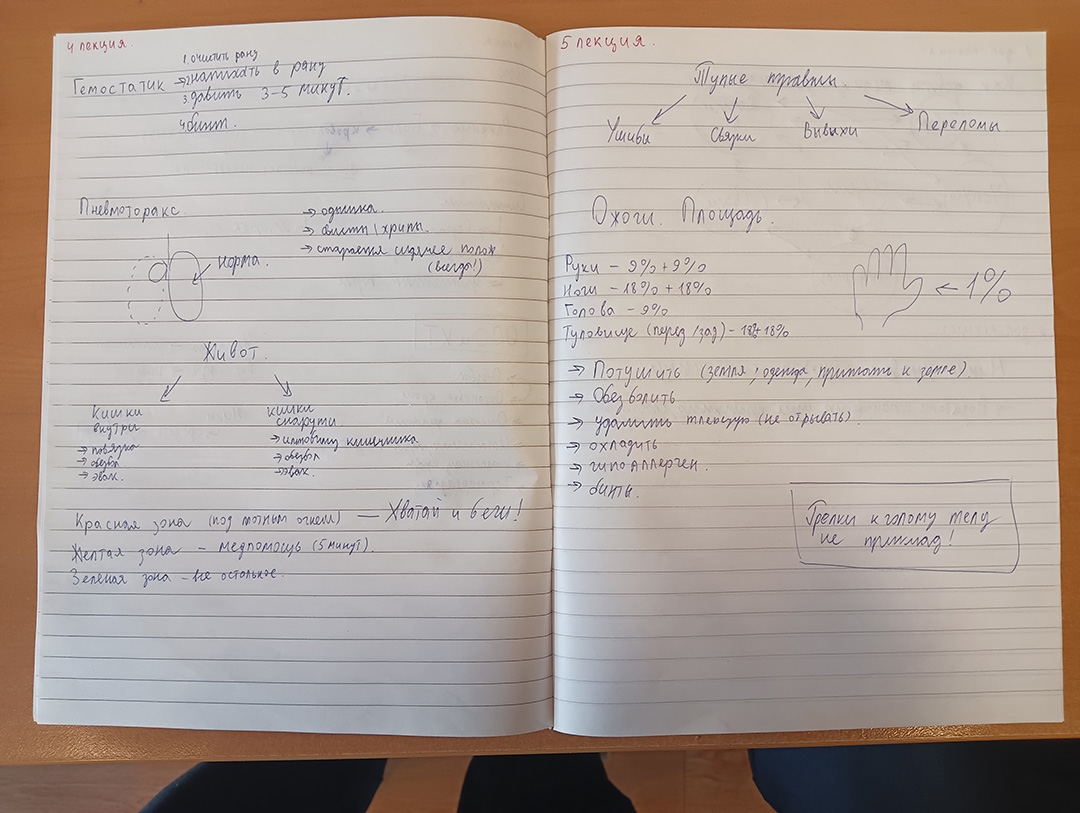 4 лекция.
1. очистить рану
Гемостатик → 2 напихать в рану
3. давить 3-5 минут.
4 бинт.
Пневмоторакс.
→ одышка.
→ свисты / хрипы.
→ старается сидячее полож
(всегда!)
норма.
Живот.
кишки
внутри
→ повязка
→ обезбол
→ эвак.
кишки
снаружи
кишечника
→ обезбол
→ эвак.
Красная зона (под плотным огнем) — Хватай и беги!
Желтая зона – медпомощь (5 минут).
Зеленая зона – все остальное.
5 лекция.
Тупые травмы
Ушибы Связки Вывихи Переломы.
Ожоги. Площадь.
Руки – 9% + 9%
Ноги – 18% + 18%
Голова – 9%
Туловище (перед / зад) – 18% + 18%
← 1%
→ Потушить (земля, одежда, прижать к земле)
→ Обезболить
→ удалить тлеющую (не отрывать).
→ охладить
→ гипоаллерген.
→ бинты.
Грелки к голому телу
не приклад!